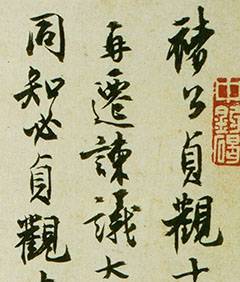 褚公貞觀十
再遷諫議大
同知必貞觀